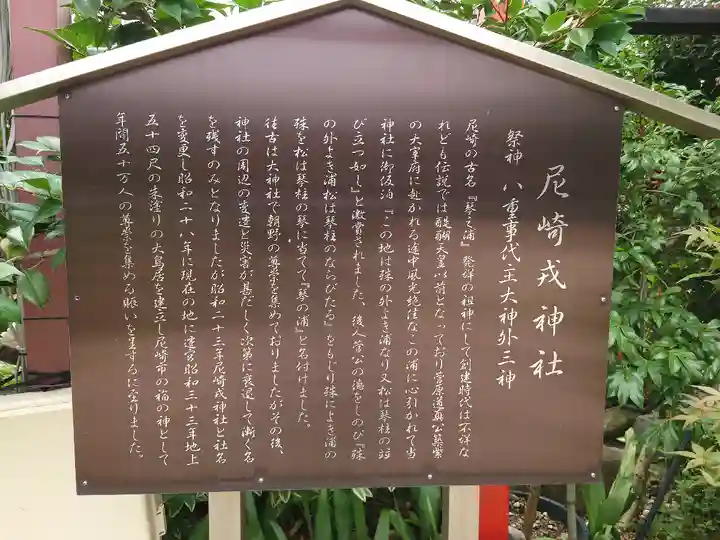 尼崎戎神社
祭神 八重事代主大神外三神
尼崎の古名『琴之浦』発祥の祖神にして創建時代は不詳な
れども伝説では醍醐天皇以前となっており菅原道真公築紫
の大宰府に赴かれる途中風光絶佳なこの浦に心引かれて当
神社に御仮泊『この地は殊の外よき浦なり又松は琴柱の
び立つ如し』と激賞されました、後人菅公の徳をしのび『殊
の外よき浦松は琴柱のならびたる』をもじり殊によき浦の
殊を松は琴柱の琴に当てて『琴の浦』と名付けました。
往古は大神社で朝野の尊崇を集めておりましたがその後、
神社の周辺の変遷と災害が甚だしく次第に衰退して漸く名
を残すのみとなりましたが昭和二十三年尼崎戎神社と社名
を変更し昭和二十八年に現在の地に遷宮昭和三十三年地上
五十四尺の朱塗りの大鳥居を建立し尼崎市の福の神として
年間五十万人の尊崇を集める賑いを呈するに至りました。